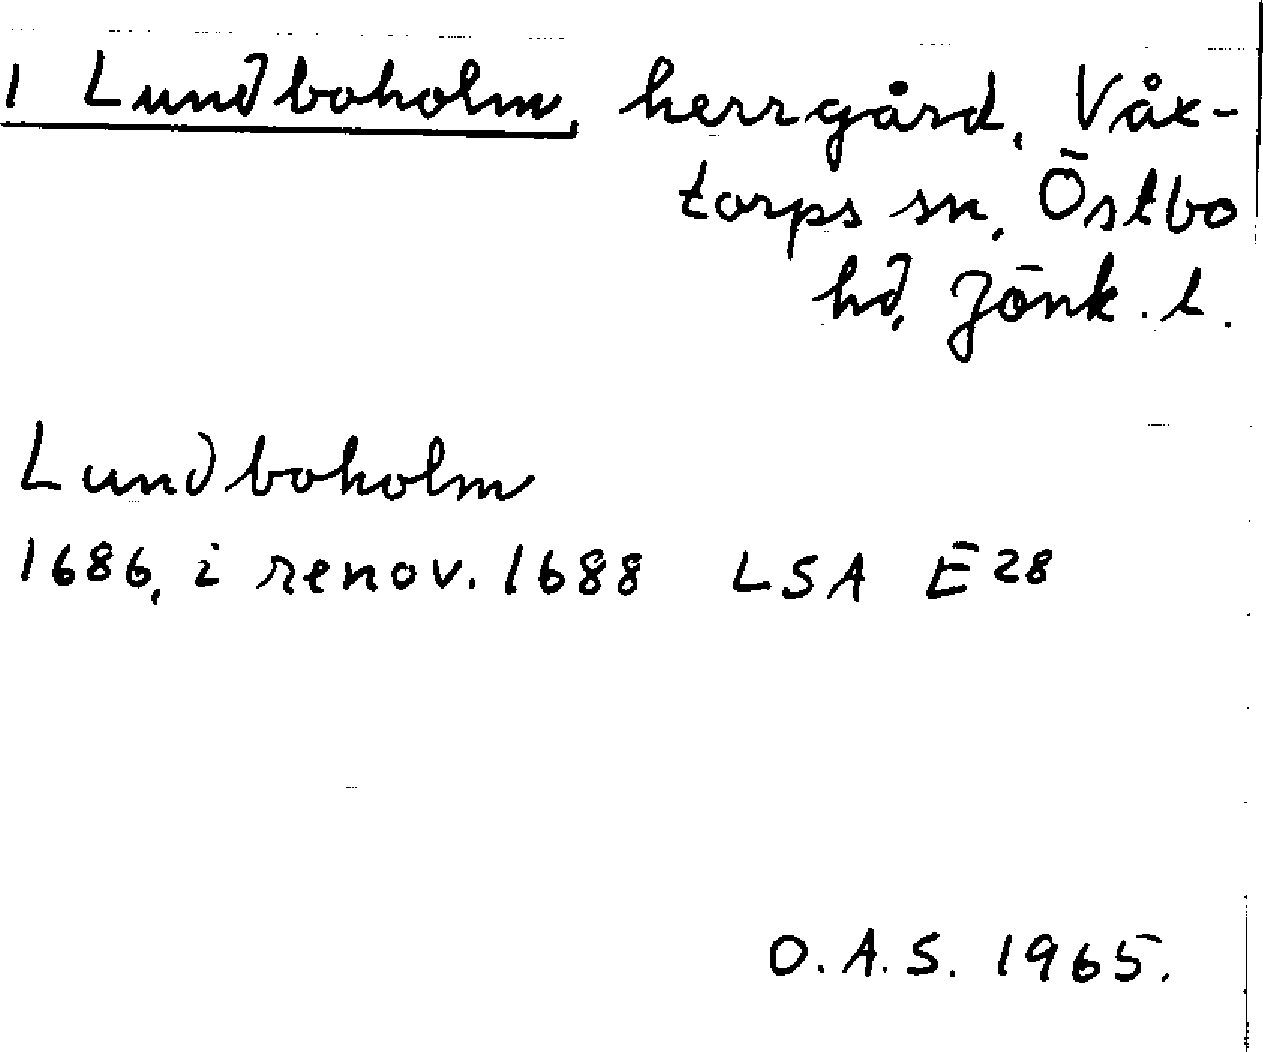 1 Lundboholm, herrgård, Våx-
torps sn, Östbo
hd, Jönk. l.
Lundboholm
1686, i renov. 1688 LSA E 28
O.A.S. 1965.